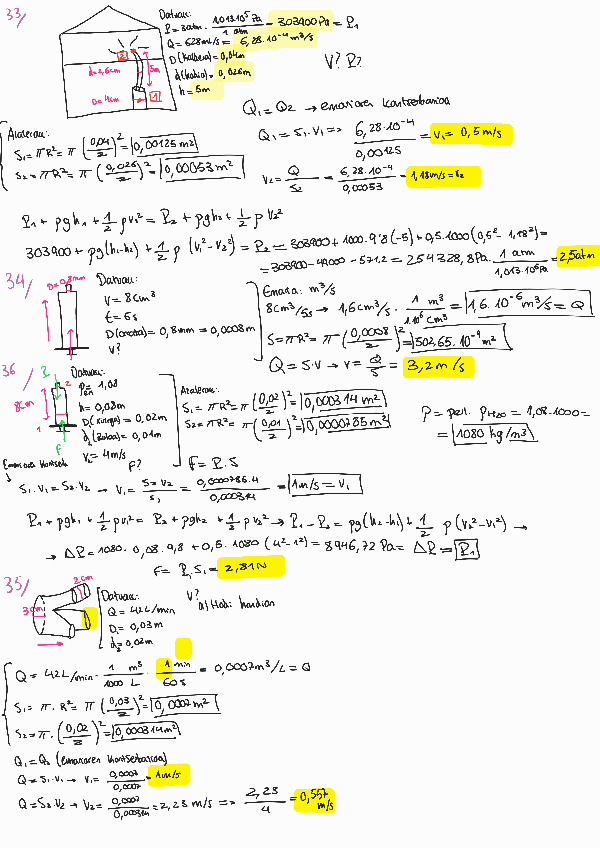 33/
Datuak:
P = 3atm · 1.013·10⁵ Pa / 1 atm = 303900 Pa = P₁
Q = 628mL/s = 6,28·10⁻⁴ m³/s
D(kalbera) = 0,04m
d(kabia) = 0,026m
h = 5m
V? P?
2
d=2,6cm
5m
D=4cm
1
Q₁ = Q₂ → emariaren kontserbazioa
Azalerak:
S₁ = πR² = π (0,04/2)² = 0,00125 m²
S₂ = πR² = π (0,026/2)² = 0,00053 m²
Q₁ = S₁·V₁ => 6,28·10⁻⁴ / 0,00125 = V₁ = 0,5 m/s
V₂ = Q/S₂ = 6,28·10⁻⁴ / 0,00053 = 1,18 m/s = V₂
P₁ + ρgh₁ + 1/2 ρv₁² = P₂ + ρgh₂ + 1/2 ρ v₂²
303900 + ρg(h₁-h₂) + 1/2 ρ (v₁²-v₂²) = P₂ = 303900 + 1000·9'8(-5) + 0,5·1000(0,5²-1,18²) =
= 303900 - 49000 - 571,2 = 254328,8 Pa · 1 atm / 1,013·10⁵ Pa = 2,5 atm
34/
D=0,8mm
Datuak:
V = 8cm³
t = 5s
D(orratza) = 0,8mm = 0,0008m
V?
Emaria: m³/s
8cm³/5s → 1,6cm³/s · 1 m³ / 1·10⁶ cm³ = 1,6·10⁻⁶ m³/s = Q
S = πR² = π (0,0008/2)² = 502,65·10⁻⁹ m²
Q = S·V → v = Q/S = 3,2 m/s
36/
8cm
2
1
F
Datuak:
ρ = 1,08
h = 0,08m
D(xiringa) = 0,02m
d = 0,01m
V₂ = 4m/s
F?
Azalerak:
S₁ = πR² = π (0,02/2)² = 0,000314 m²
S₂ = πR² = π (0,01/2)² = 0,0000785 m²
F = P·S
ρ = ρerl. ρH₂O = 1,08·1000 =
= 1080 kg/m³
S₁·V₁ = S₂·V₂ → V₁ = S₂·V₂ / S₁ = 0,0000785·4 / 0,000314 = 1m/s = V₁
P₁ + ρgh₁ + 1/2 ρv₁² = P₂ + ρgh₂ + 1/2 ρ v₂² → P₁ - P₂ = ρg(h₂-h₁) + 1/2 ρ (v₂²-v₁²) →
→ ΔP = 1080·0,08·9,8 + 0,5·1080 (4²-1²) = 8946,72 Pa = ΔP = P₁
F = P₁S₁ = 2,81N
35/
2cm
3cm
Datuak:
Q = 42L/min
D₁ = 0,03m
d₂ = 0,02m
V?
a) Hodi handian
Q = 42L/min · 1 m³ / 1000 L · 1 min / 60 s = 0,0007m³/L = Q
S₁ = π·R² = π (0,03/2)² = 0,0007 m²
S₂ = π·(0,02/2)² = 0,000314 m²
Q₁ = Q₂ (emariaren kontserbazioa)
Q = S₁·V₁ → V₁ = 0,0007 / 0,0007 = 1m/s
Q = S₂·V₂ → V₂ = 0,0007 / 0,000314 = 2,23 m/s => 2,23 / 4 = 0,557 m/s